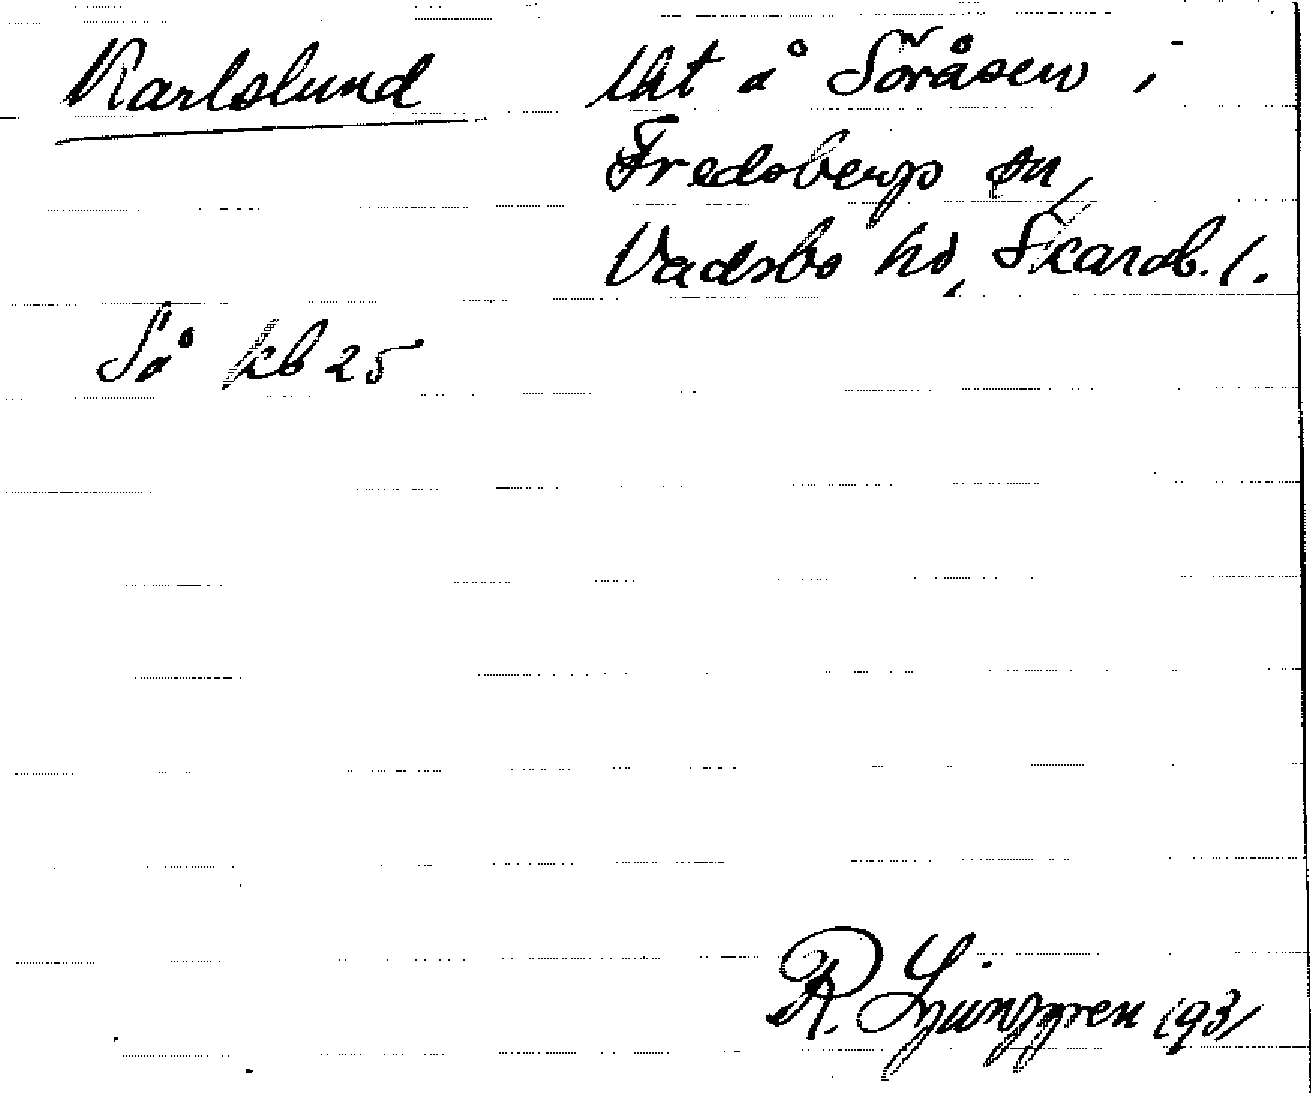 Karlslund lht å Söråsen i
Fredsbergs sn,
Vadsbo hd, Skarab. l.
Så kb 25
R. Ljunggren 1931